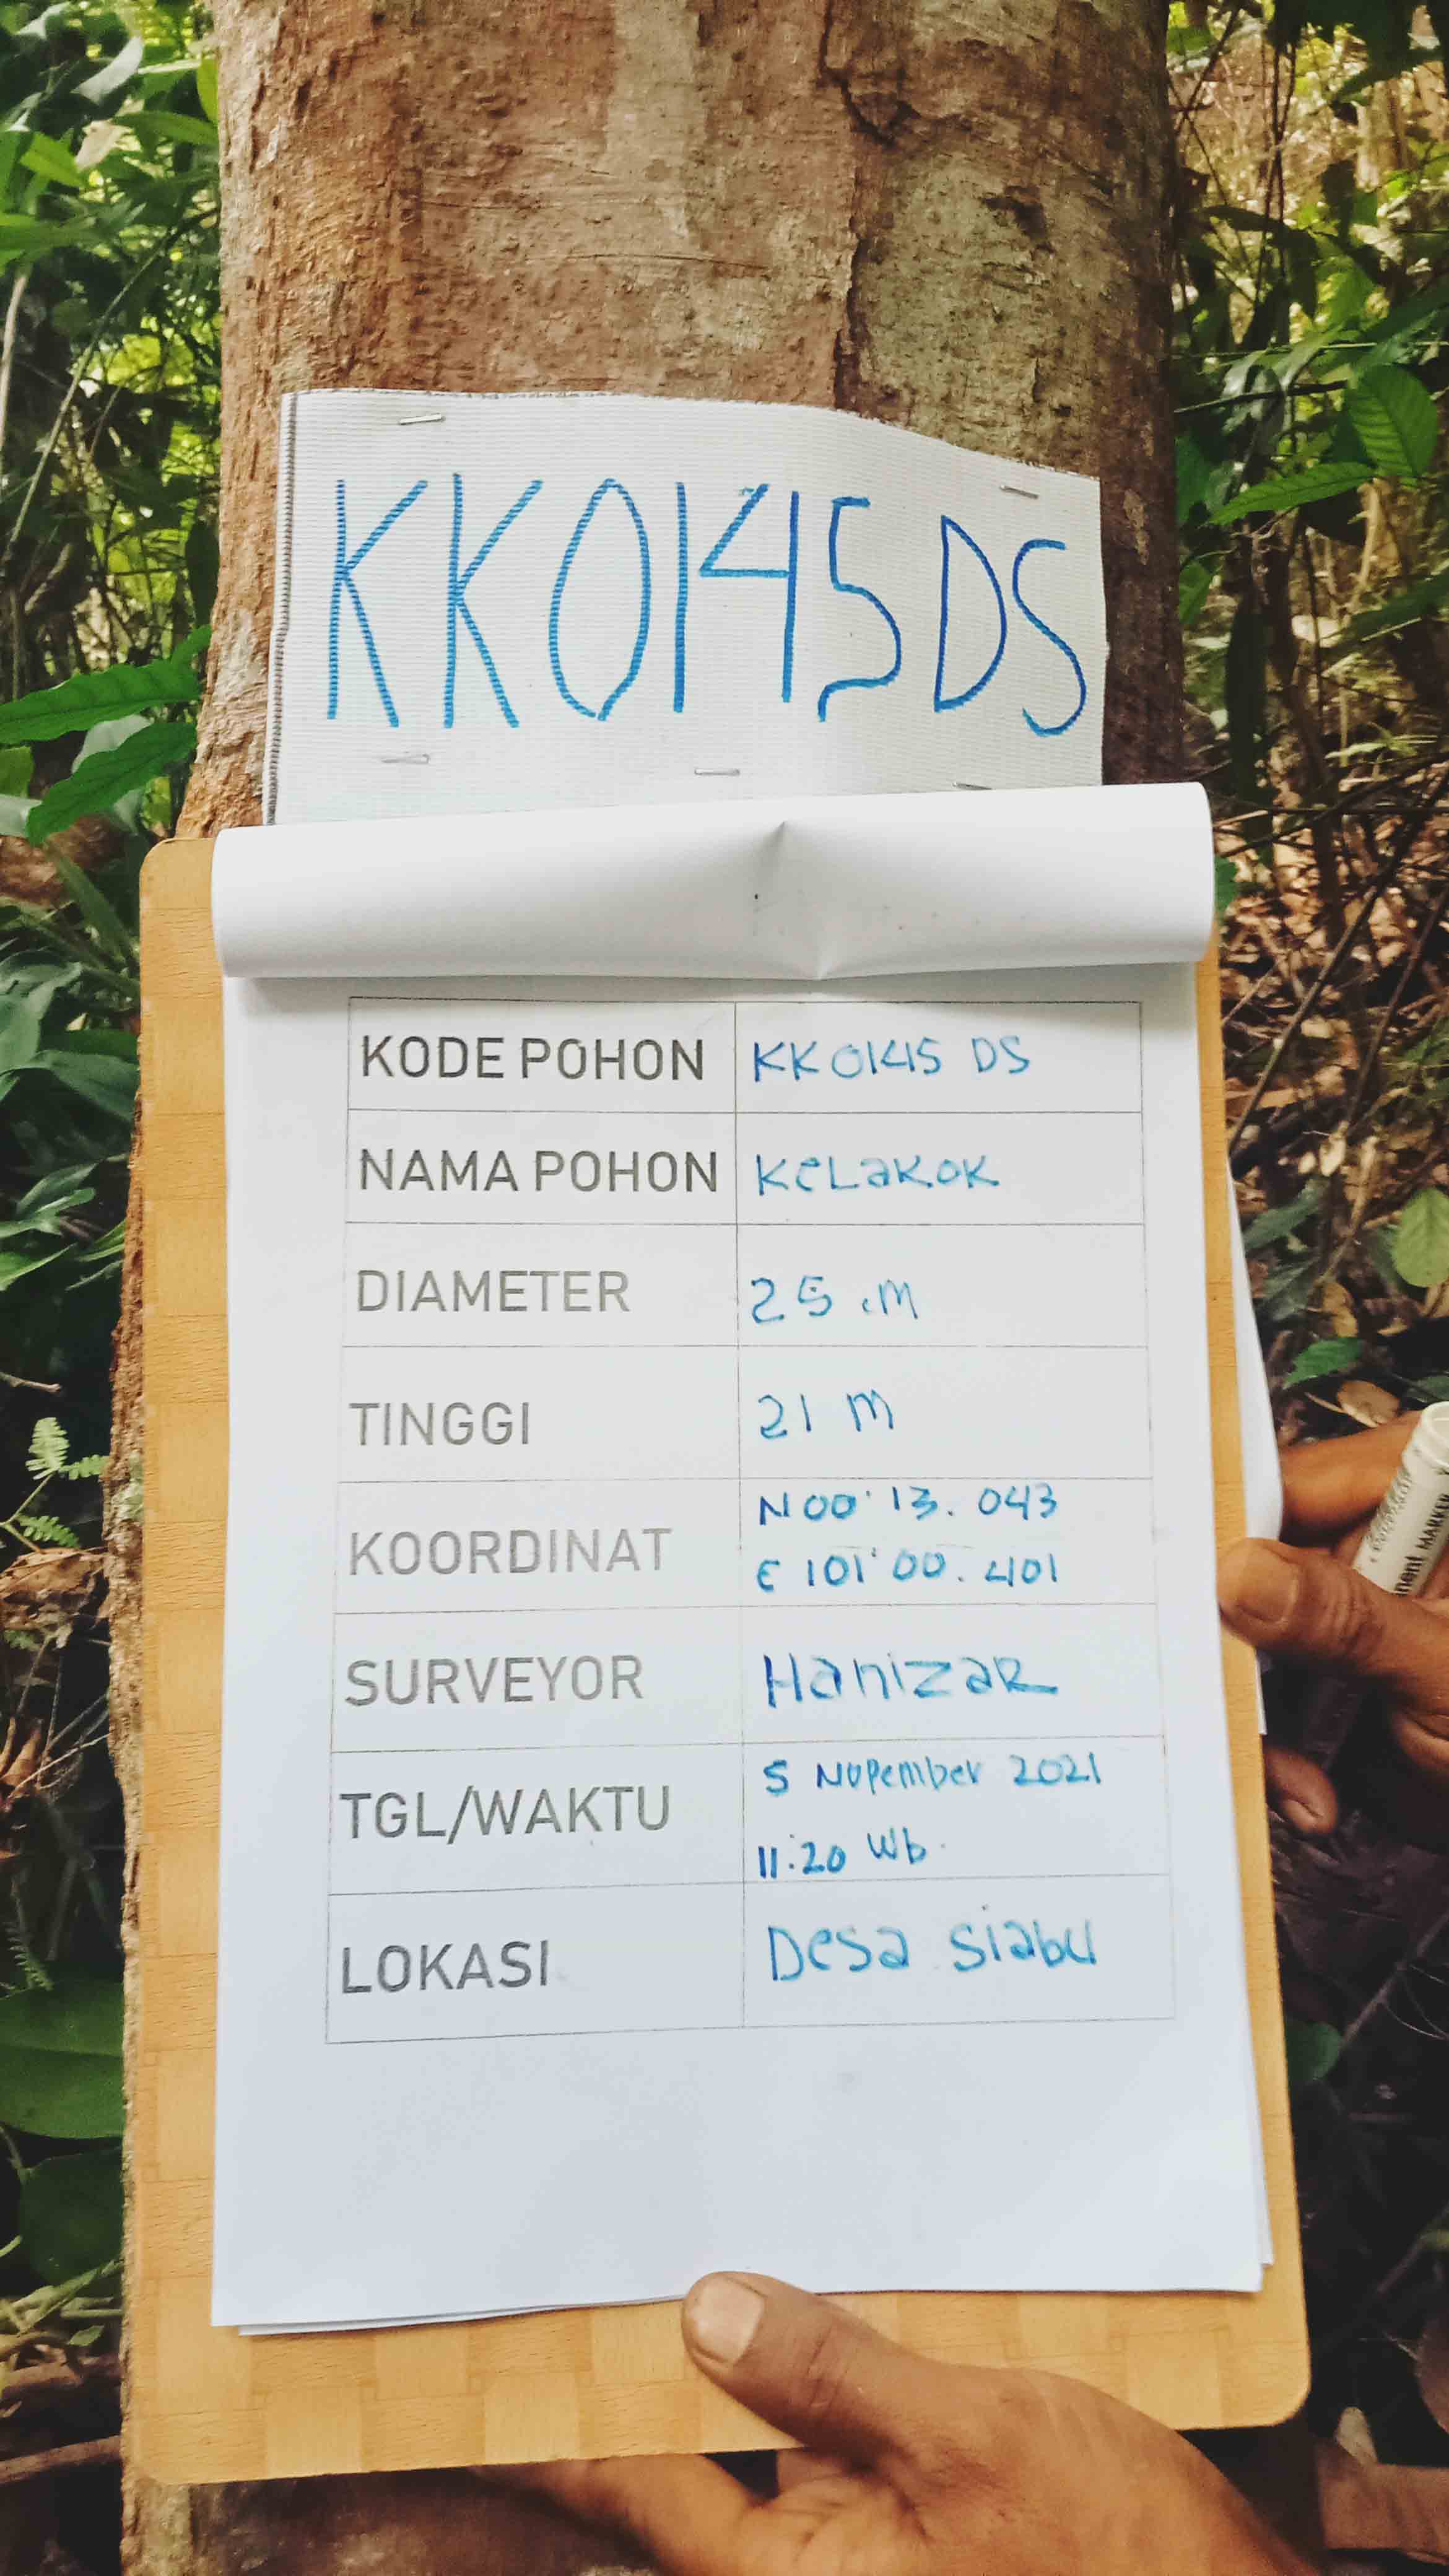 KK0145 DS
KODE POHON KK 0145 DS
NAMA POHON KeLaKOK
DIAMETER 25 .m
TINGGI 21 m
KOORDINAT N 00' 13. 043
E 101' 00. 401
SURVEYOR HanizaR
TGL/WAKTU 5 Nopember 2021
11:20 Wb.
LOKASI Desa siabu
MARKER